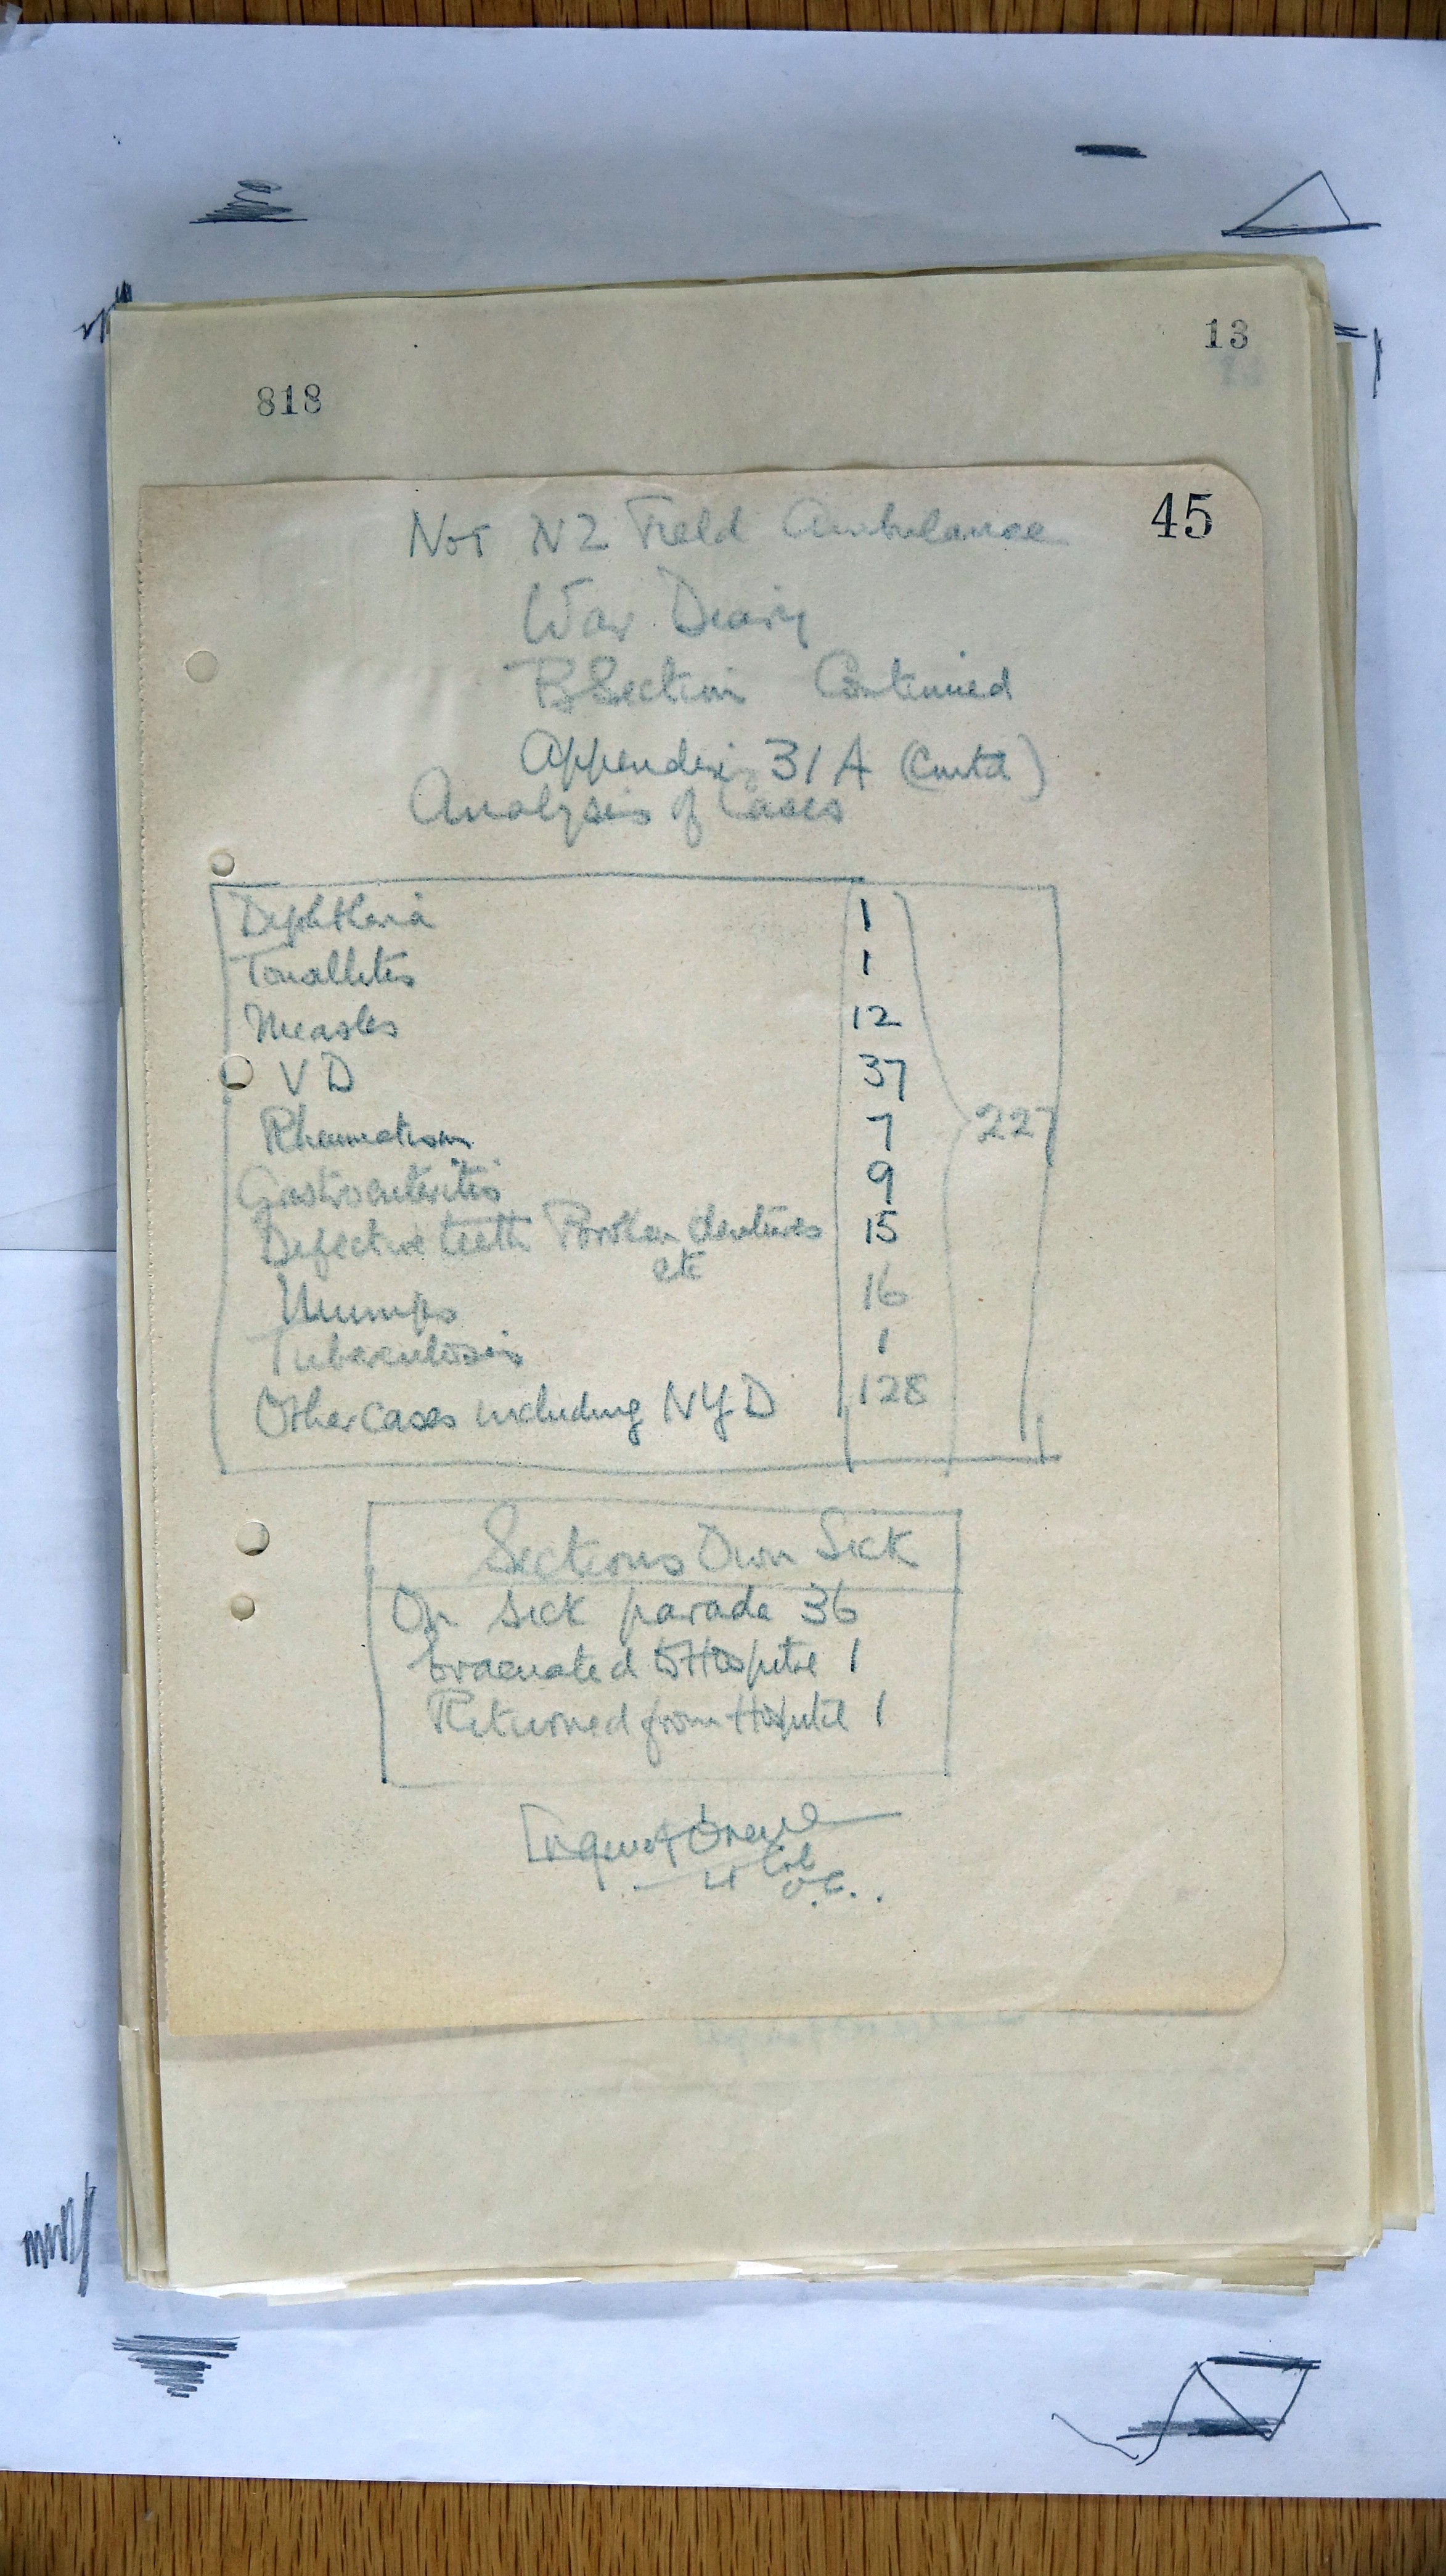 13
818
45
No 1 NZ Field Ambulance
War Diary
B Section Continued
Appendix 31A (Contd)
Analysis of Cases
Diphtheria 1
Tonsillitis 1
Measles 12
V D 37
Rheumatism 7
227
Gastroenteritis 9
Defective teeth Broken dentures 15
etc
Mumps 16
Tuberculosis 1
Other cases including NYD 128
Sections Own Sick
On sick parade 36
Evacuated to Hospital 1
Returned from Hospital 1
Lt Col
O.C.